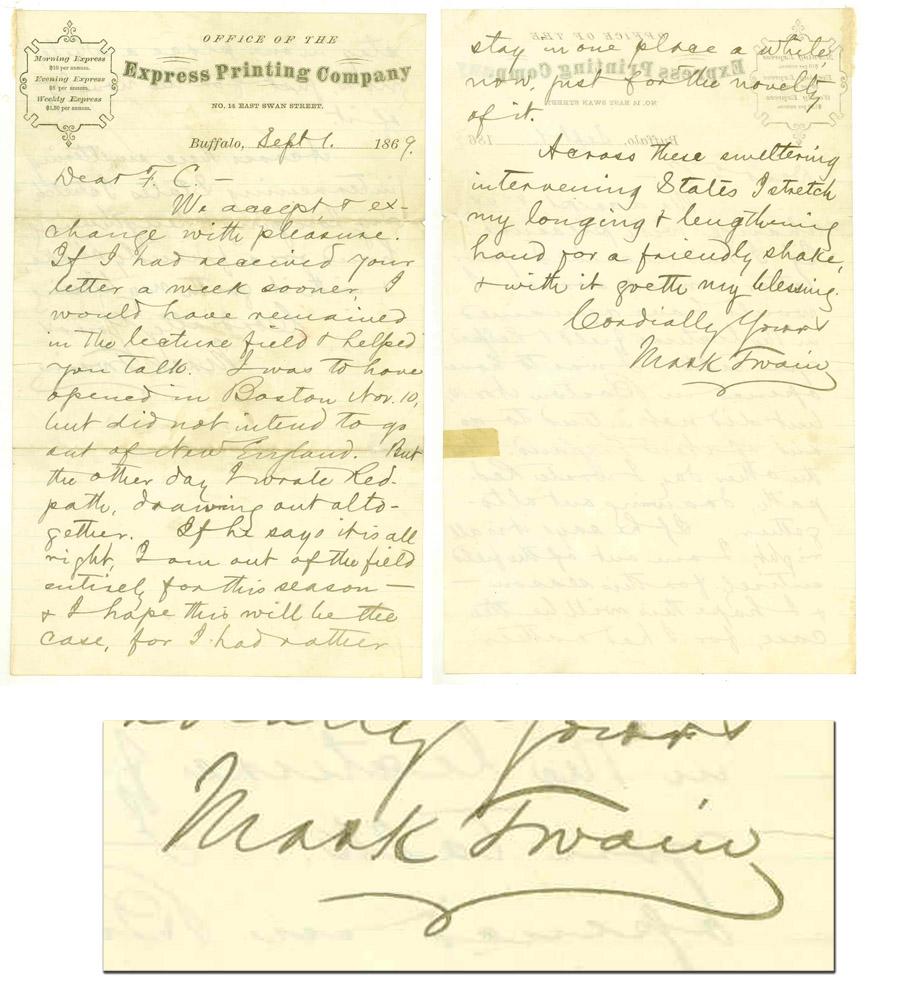 OFFICE OF THE
Express Printing Company
NO. 14 EAST SWAN STREET.
Morning Express
$10 per annum.
Evening Express
$8 per annum.
Weekly Express
$1.50 per annum.
Buffalo, Sept 1. 1869.
Dear F. C. —
We accept, & ex-
change with pleasure.
If I had received your
letter a week sooner, I
would have remained
in the lecture field & helped
you talk. I was to have
opened in Boston Nov. 10,
but did not intend to go
out of New England. But
the other day I wrote Red-
path, drawing out alto-
gether. If he says it is all
right, I am out of the field
entirely for this season —
& I hope this will be the
case, for I had rather
stay in one place a while
now, just for the novelty
of it.
Across these sweltering
intervening States I stretch
my longing & lengthening
hand for a friendly shake,
& with it goeth my blessing.
Cordially Yours
Mark Twain
Yours
Mark Twain